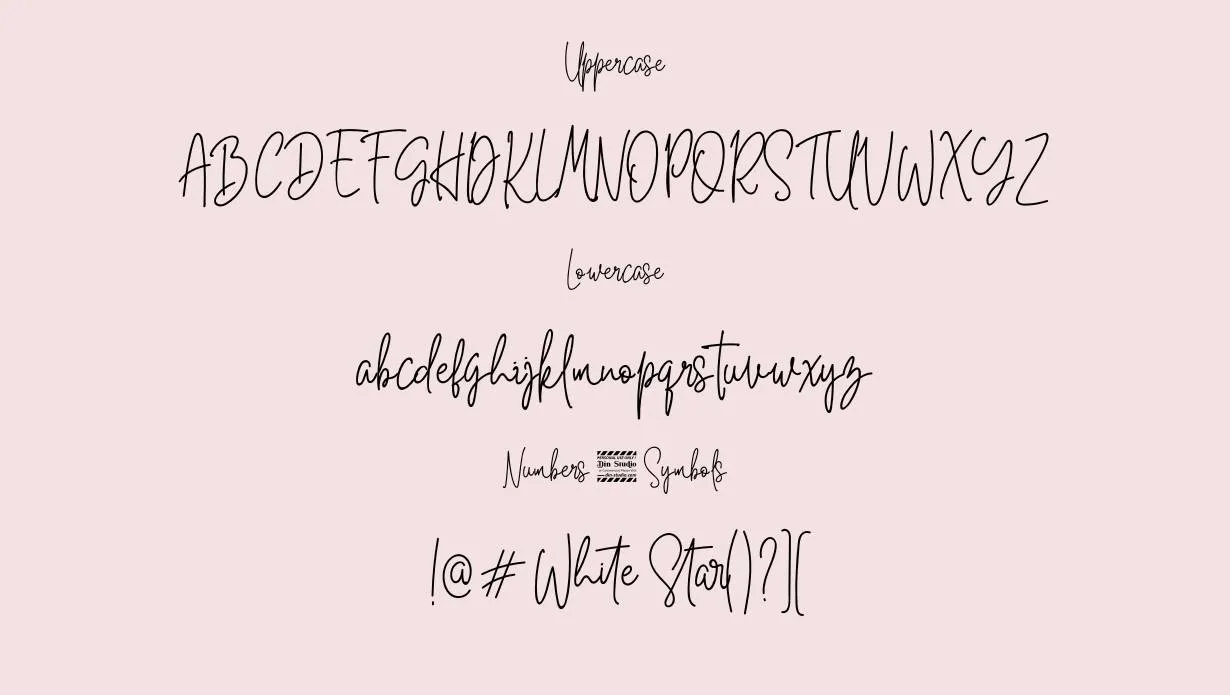 Uppercase
ABCDEFGHIJKLMNOPQRSTUVWXYZ
Lowercase
abcdefghijklmnopqrstuvwxyz
Numbers
PERSONAL USE ONLY!
Din Studio
din-studio.com
Symbols
!@#White Star()?][